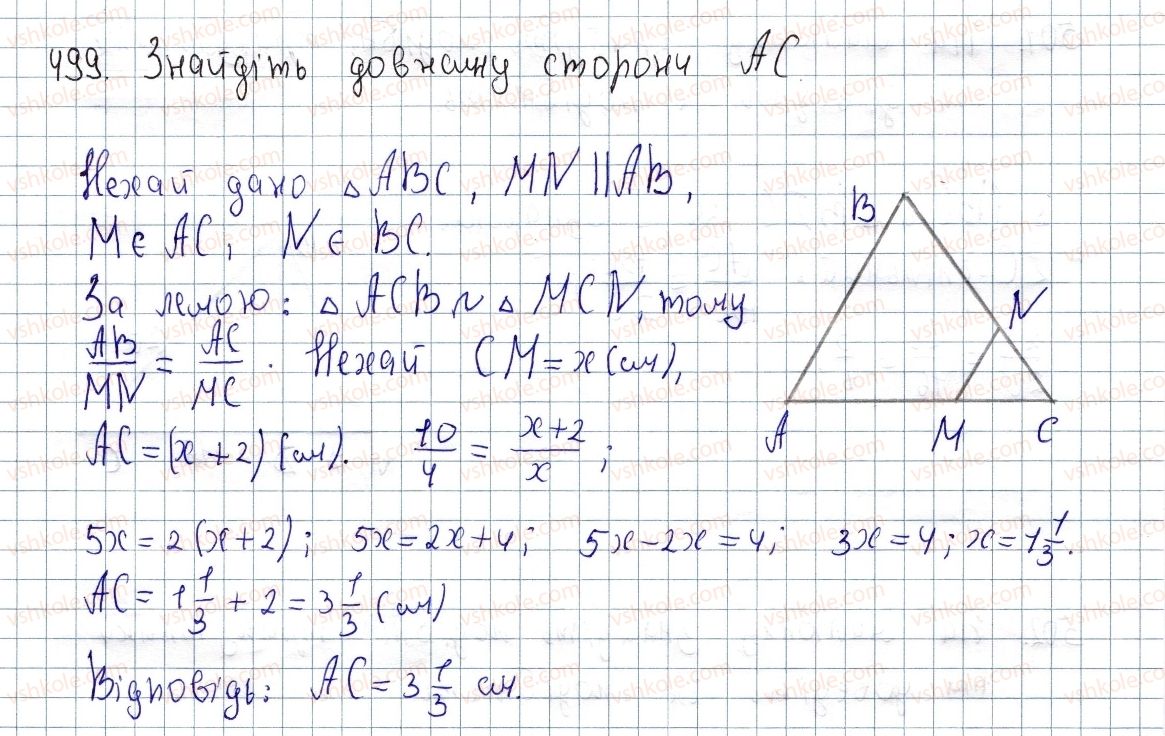 499. Знайдіть довжину сторони AC.
Нехай дано △ABC, MN||AB,
M є AC, N є BC.
За лемою: △ACB ~ △MCN, тому
AB/MN = AC/MC. Нехай CM = x (см),
AC = (x + 2) (см). 10/4 = x+2/x;
5x = 2(x+2); 5x = 2x+4; 5x-2x = 4; 3x = 4; x = 1 1/3.
AC = 1 1/3 + 2 = 3 1/3 (см)
Відповідь: AC = 3 1/3 см.
B
N
A
M
C
vshkole.com